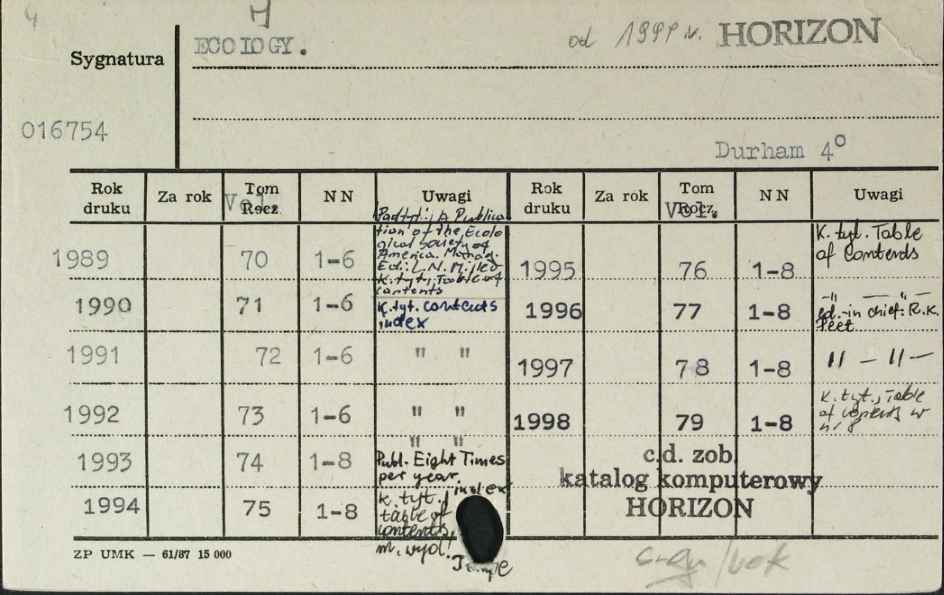 4 H
ECOLOGY. od 1999 r. HORIZON
Sygnatura
016754
Durham 4°
Rok druku Za rok Tom Rocz. Vol. N N Uwagi Rok druku Za rok Tom Rocz. Vol. N N Uwagi
1989 70 1-6 Podtyt.: A Publica
tion of the Ecolo
gical Society of
America.
K. tyt., Table of
contents
1995 76 1-8 K. tyt. Table
of Contents
1990 71 1-6 K. tyt. contents
index
1996 77 1-8 -"- -"-
ed.-in chief: R.K.
Peet
1991 72 1-6 " "
1997 78 1-8 " - " -
1992 73 1-6 " "
1998 79 1-8 K. tyt., Table
of contents w
nr 8
" "
1993 74 1-8 Publ. Eight Times
per year.
1994 75 1-8 K. tyt., index
table of
contents,
m. wyd.:
c.d. zob.
katalog komputerowy
HORIZON
ZP UMK — 61/87 15 000